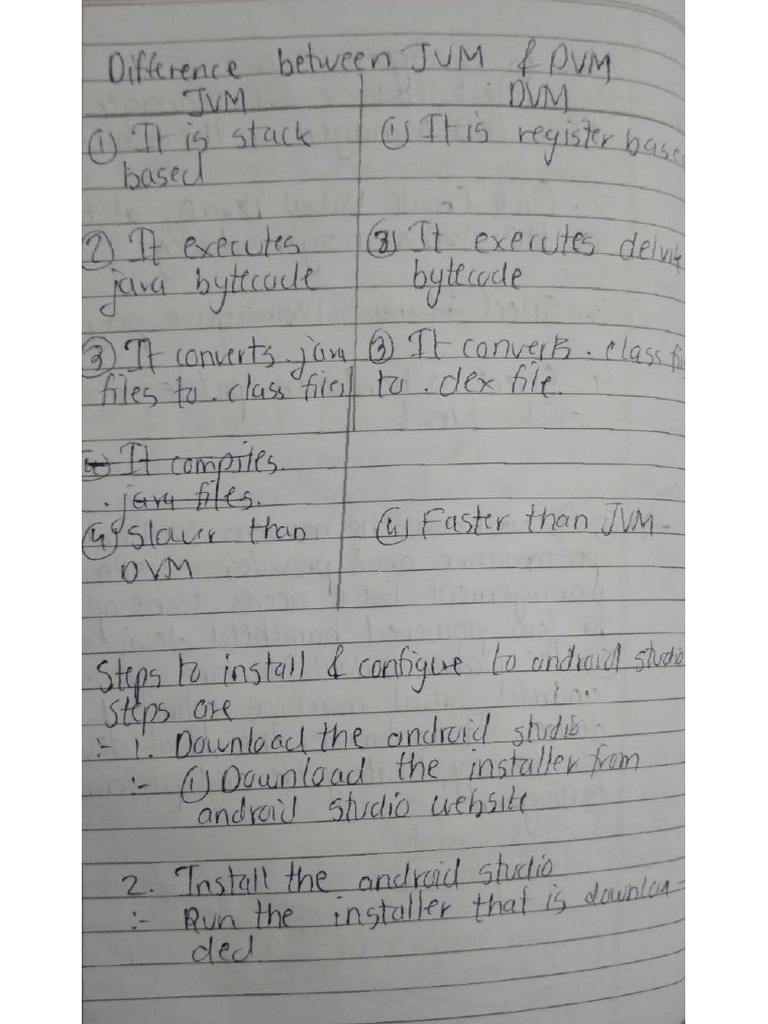 Difference between JVM & DVM
JVM DVM
① It is stack ① It is register base
based
② It executes ② It executes delvik
java bytecode bytecode
③ It converts .java ③ It converts .class fi
files to .class files to .dex file.
④ It compiles
.java files.
④ Slower than ④ Faster than JVM
DVM
Steps to install & configue to android studio
steps are
:- 1. Download the android studio
:- ① Download the installer from
android studio website
2. Install the android studio
:- Run the installer that is downloa-
ded